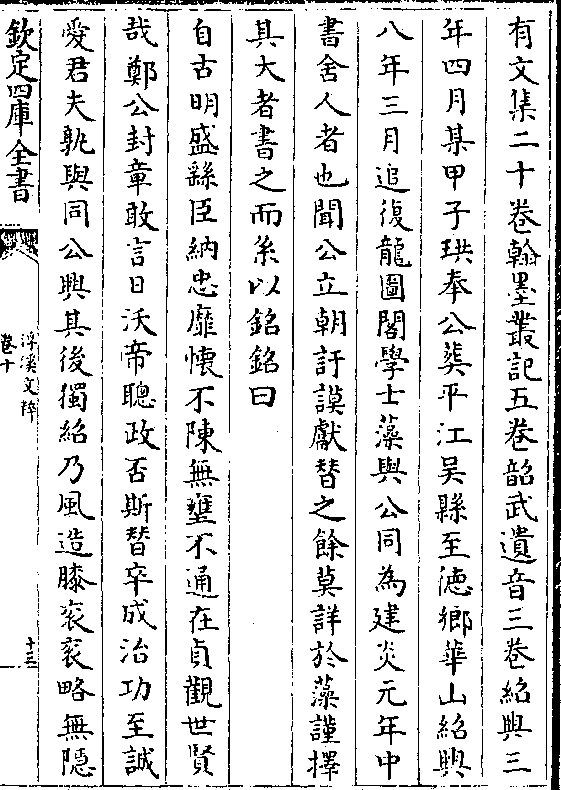 有文集二十卷翰墨叢記五卷韶武遺音三卷紹興三
年四月某甲子珙奉公葬平江吳縣至德鄉華山紹興
八年三月追復龍圖閣學士藻與公同為建炎元年中
書舍人者也聞公立朝訏謨獻替之餘莫詳於藻謹擇
其大者書之而系以銘銘曰
自古明盛繇臣納忠靡懷不陳無壅不通在貞觀世賢
哉鄭公封章敢言日沃帝聰政否斯替卒成治功至誠
愛君夫孰與同公興其後獨紹乃風造膝衮衮略無隱
欽定四庫全書
浮溪文粹
卷十
十三